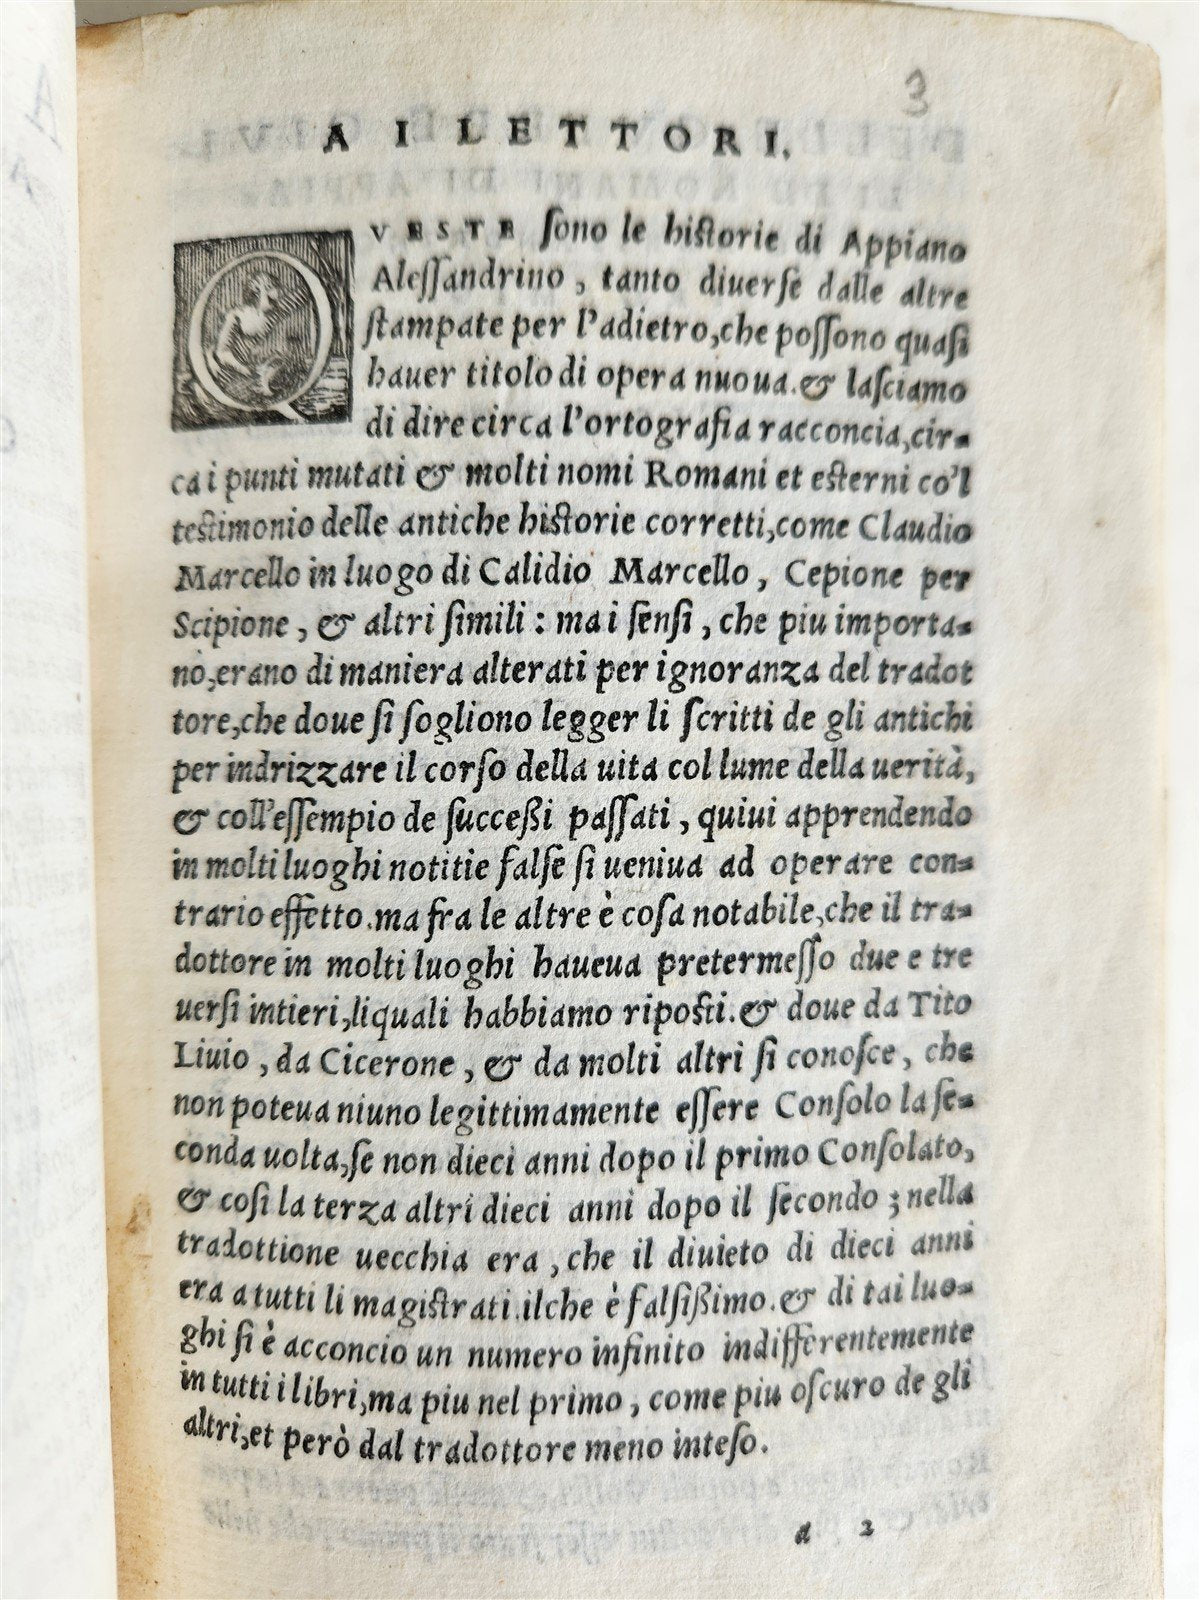 3
A I LETTORI.
QVESTE sono le historie di Appiano
Alessandrino, tanto diuerse dalle altre
stampate per l'adietro,che possono quasi
hauer titolo di opera nuoua.& lasciamo
di dire circa l'ortografia racconcia,cir-
ca i punti mutati & molti nomi Romani et esterni co'l
testimonio delle antiche historie corretti,come Claudio
Marcello in luogo di Calidio Marcello, Cepione per
Scipione, & altri simili: ma i sensi, che piu importa-
no,erano di maniera alterati per ignoranza del tradot
tore,che doue si sogliono legger li scritti de gli antichi
per indrizzare il corso della uita col lume della uerità,
& coll'essempio de successi passati, quiui apprendendo
in molti luoghi notitie false si ueniua ad operare con-
trario effetto.ma fra le altre è cosa notabile,che il tra-
dottore in molti luoghi haueua pretermesso due e tre
uersi intieri,liquali habbiamo riposti.& doue da Tito
Liuio, da Cicerone, & da molti altri si conosce, che
non poteua niuno legittimamente essere Consolo la se-
conda uolta,se non dieci anni dopo il primo Consolato,
& cosi la terza altri dieci anni dopo il secondo; nella
tradottione uecchia era, che il diuieto di dieci anni
era a tutti li magistrati.ilche è falsissimo.& di tai luo-
ghi si è acconcio un numero infinito indifferentemente
in tutti i libri,ma piu nel primo, come piu oscuro de gli
altri,et però dal tradottore meno inteso.
a 2